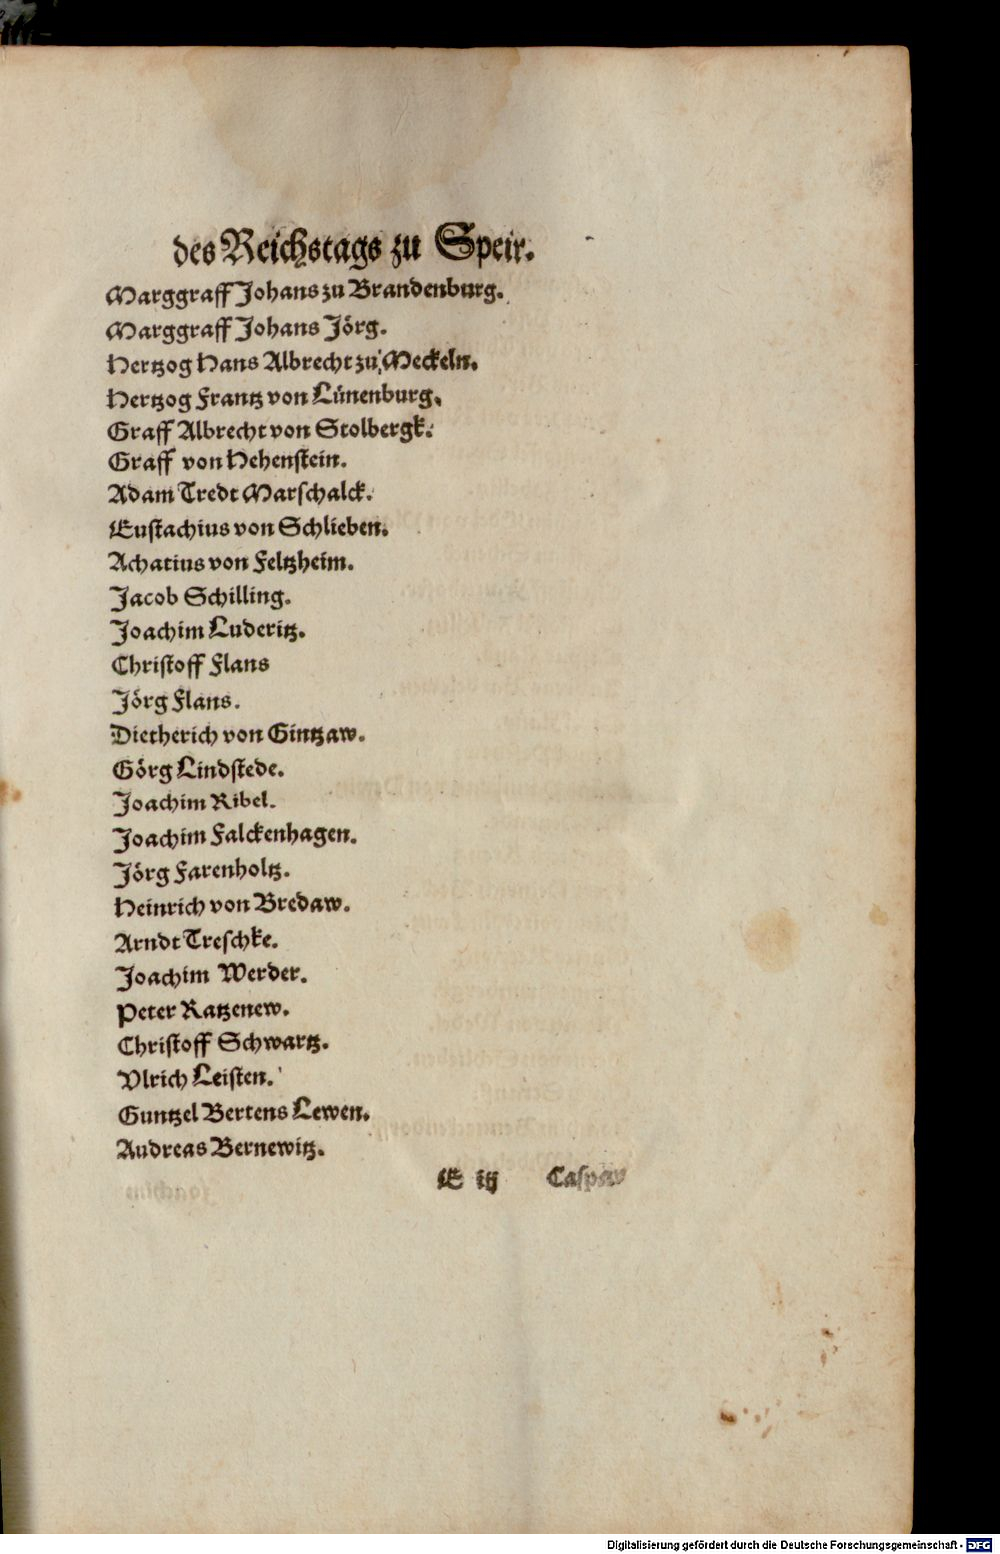 des Reichstags zu Speir.
Marggraff Johans zu Brandenburg.
Marggraff Johans Jörg.
Hertzog Hans Albrecht zu Meckeln.
Hertzog Frantz von Lünenburg.
Graff Albrecht von Stolbergk.
Graff von Hehenstein.
Adam Tredt Marschalck.
Eustachius von Schlieben.
Achatius von Feltzheim.
Jacob Schilling.
Joachim Luderitz.
Christoff Flans
Jörg Flans.
Dietherich von Gintzaw.
Görg Lindstede.
Joachim Ribel.
Joachim Falckenhagen.
Jörg Farenholtz.
Heinrich von Bredaw.
Arndt Treschke.
Joachim Werder.
Peter Ratzenew.
Christoff Schwartz.
Vlrich Leisten.
Guntzel Bertens Lewen.
Audreas Bernewitz.
E iij Caspar
Digitalisierung gefördert durch die Deutsche Forschungsgemeinschaft - DFG